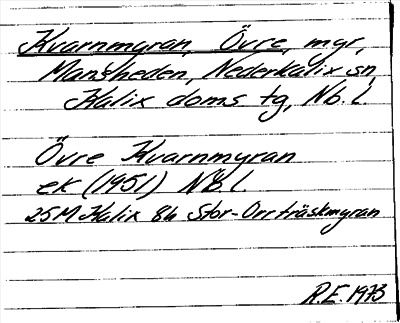 Kvarnmyran, Övre, myr,
Månsheden, Nederkalix sn,
Kalix doms tg, Nb. l.
Övre Kvarnmyran
ek (1951) Nb l.
25M Kalix 8h Stor-Orrträskmyran
R.E. 1973